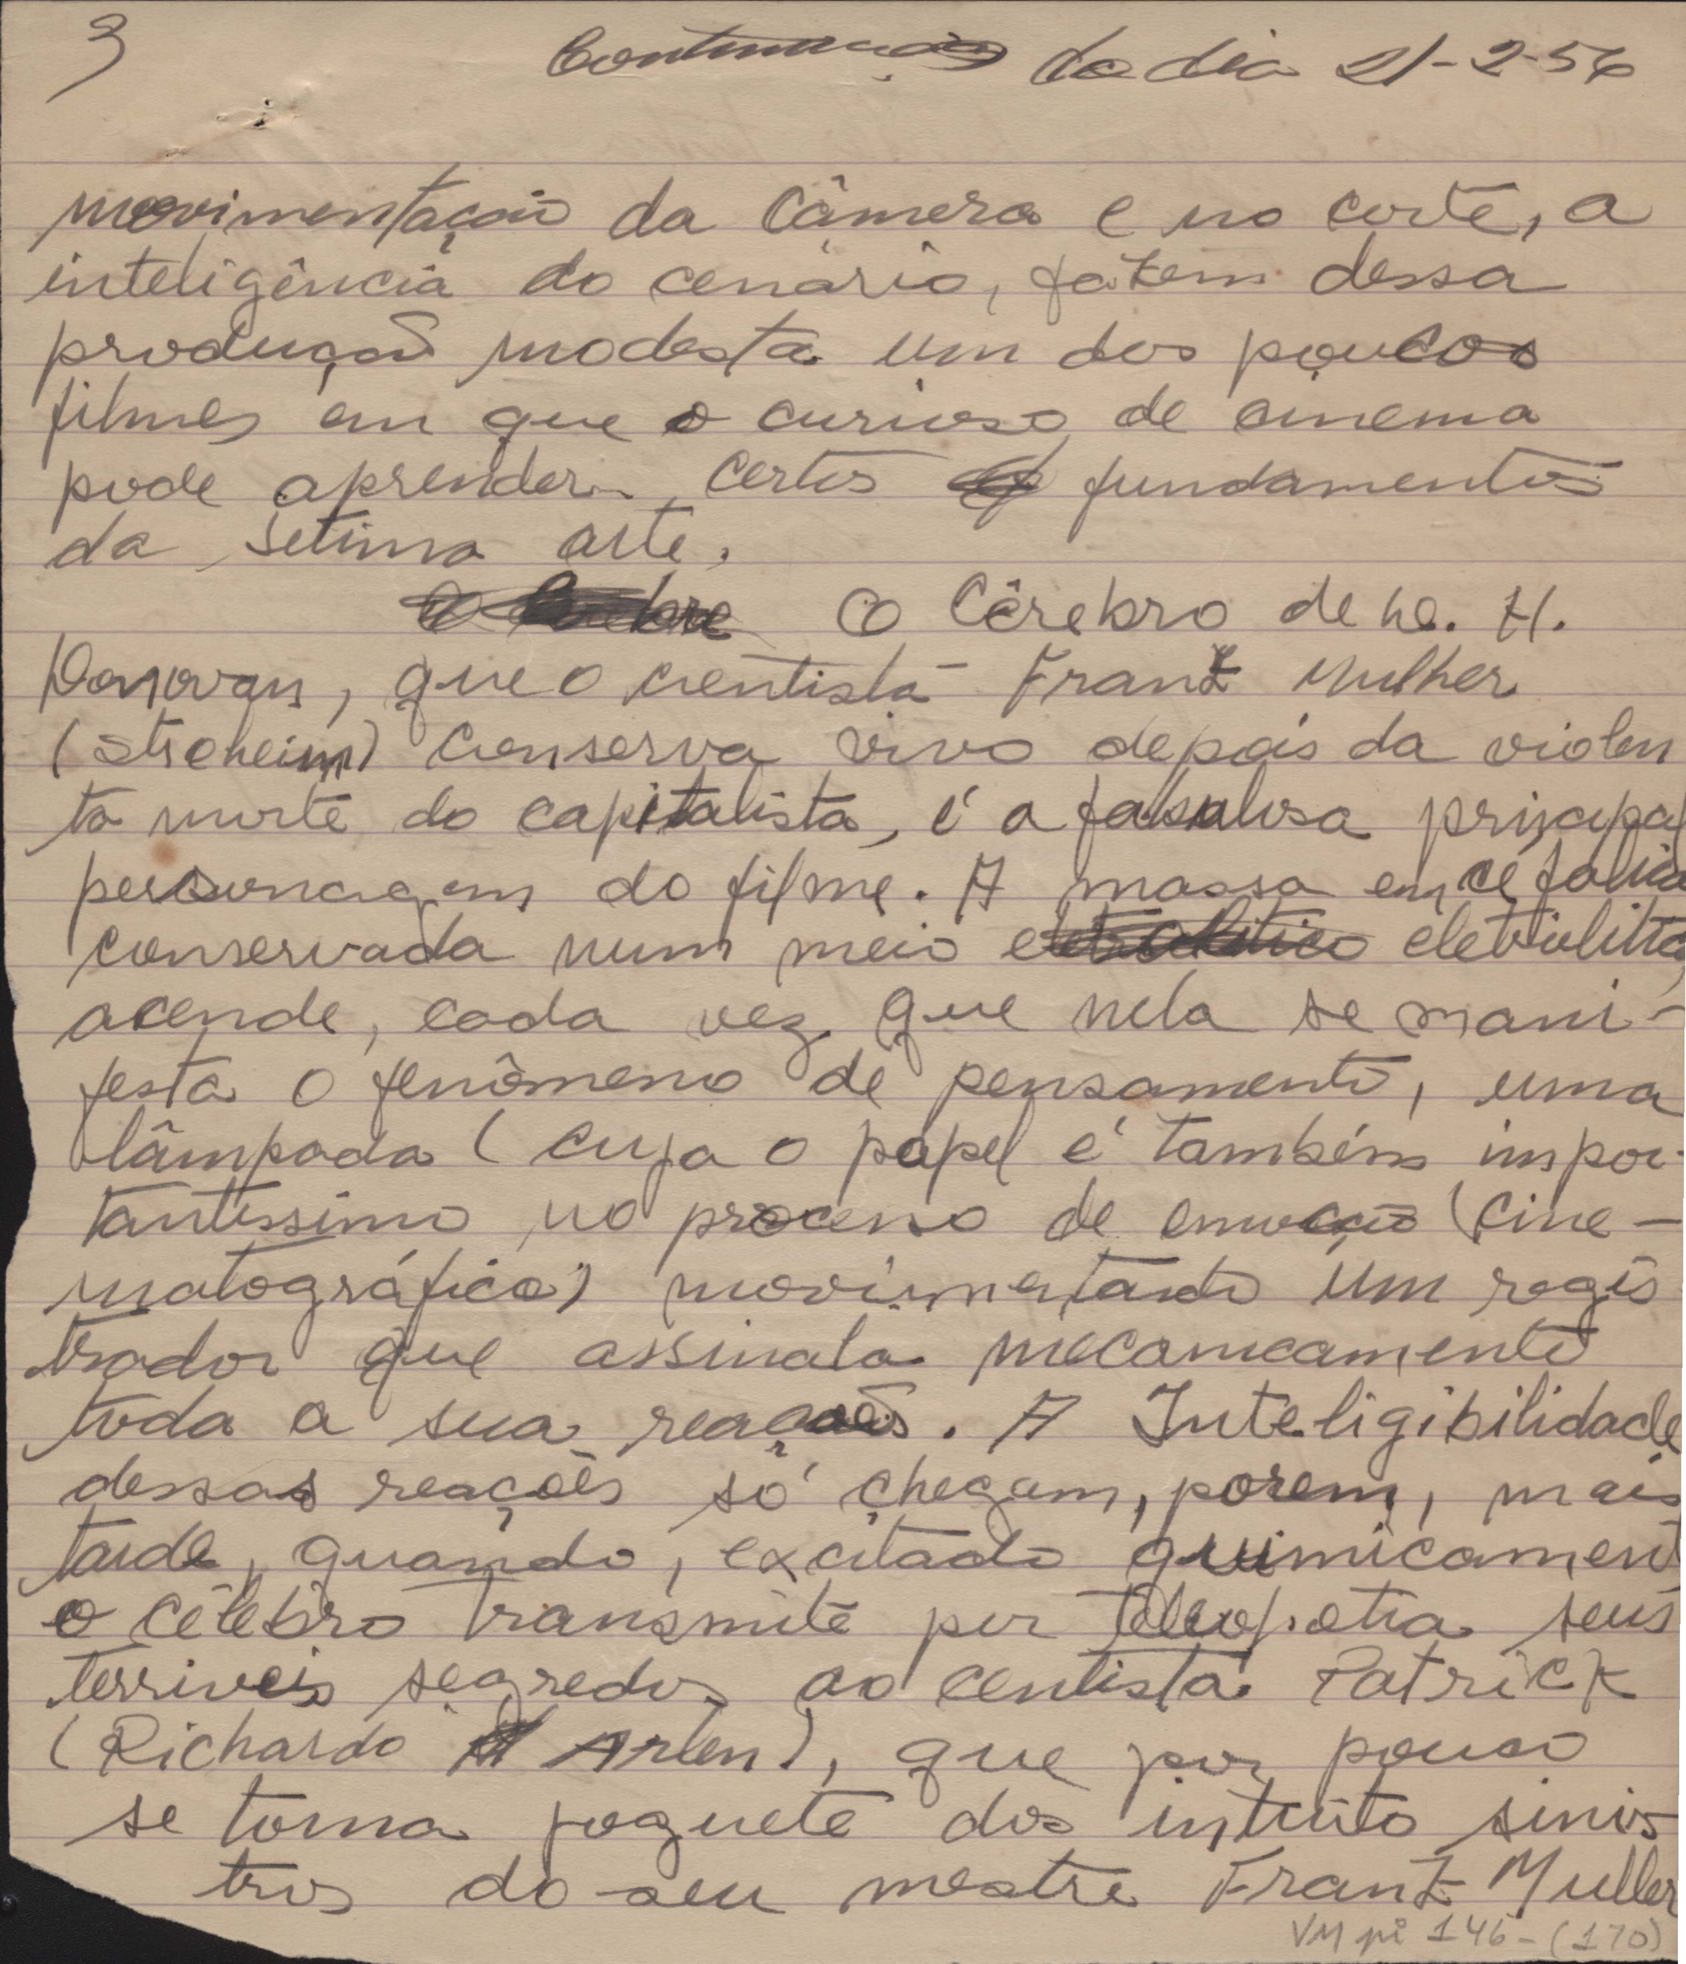 3 Continuação do dia 21-2-56
movimentação da Câmera e no corte, a
inteligência do cenário, fazem dessa
produção modesta um dos poucos
filmes em que o curioso de cinema
pode aprender certos fundamentos
da setima arte.
O Cêrebro de W. H.
Donovan, que o cientista Franz Mulher
(Stroheim) conserva vivo depois da violen
ta morte do capitalista, é a principal
personagem do filme. A massa emcéfalica
conservada num meio eletrolitico eletrolitico,
acende, cada vez que nela se mani-
festa o fenômeno de pensamento, uma
lâmpada (cuja o papel é também impor-
tantissimo no processo de emoção (cine-
matográfica) movimentando um regis
trador que assinala mecanicamente
toda a sua reações. A Inteligibilidade
dessas reações só chegam, porem, mais
tarde, quando, excitado quimicament
o célebro transmite por telepatia seus
terriveis segredos ao centista Patrick
(Richardo Arlen), que por pouco
se torna joguete dos intuito sinis
tros do seu mestre Franz Muller
VM pi 146-(170)